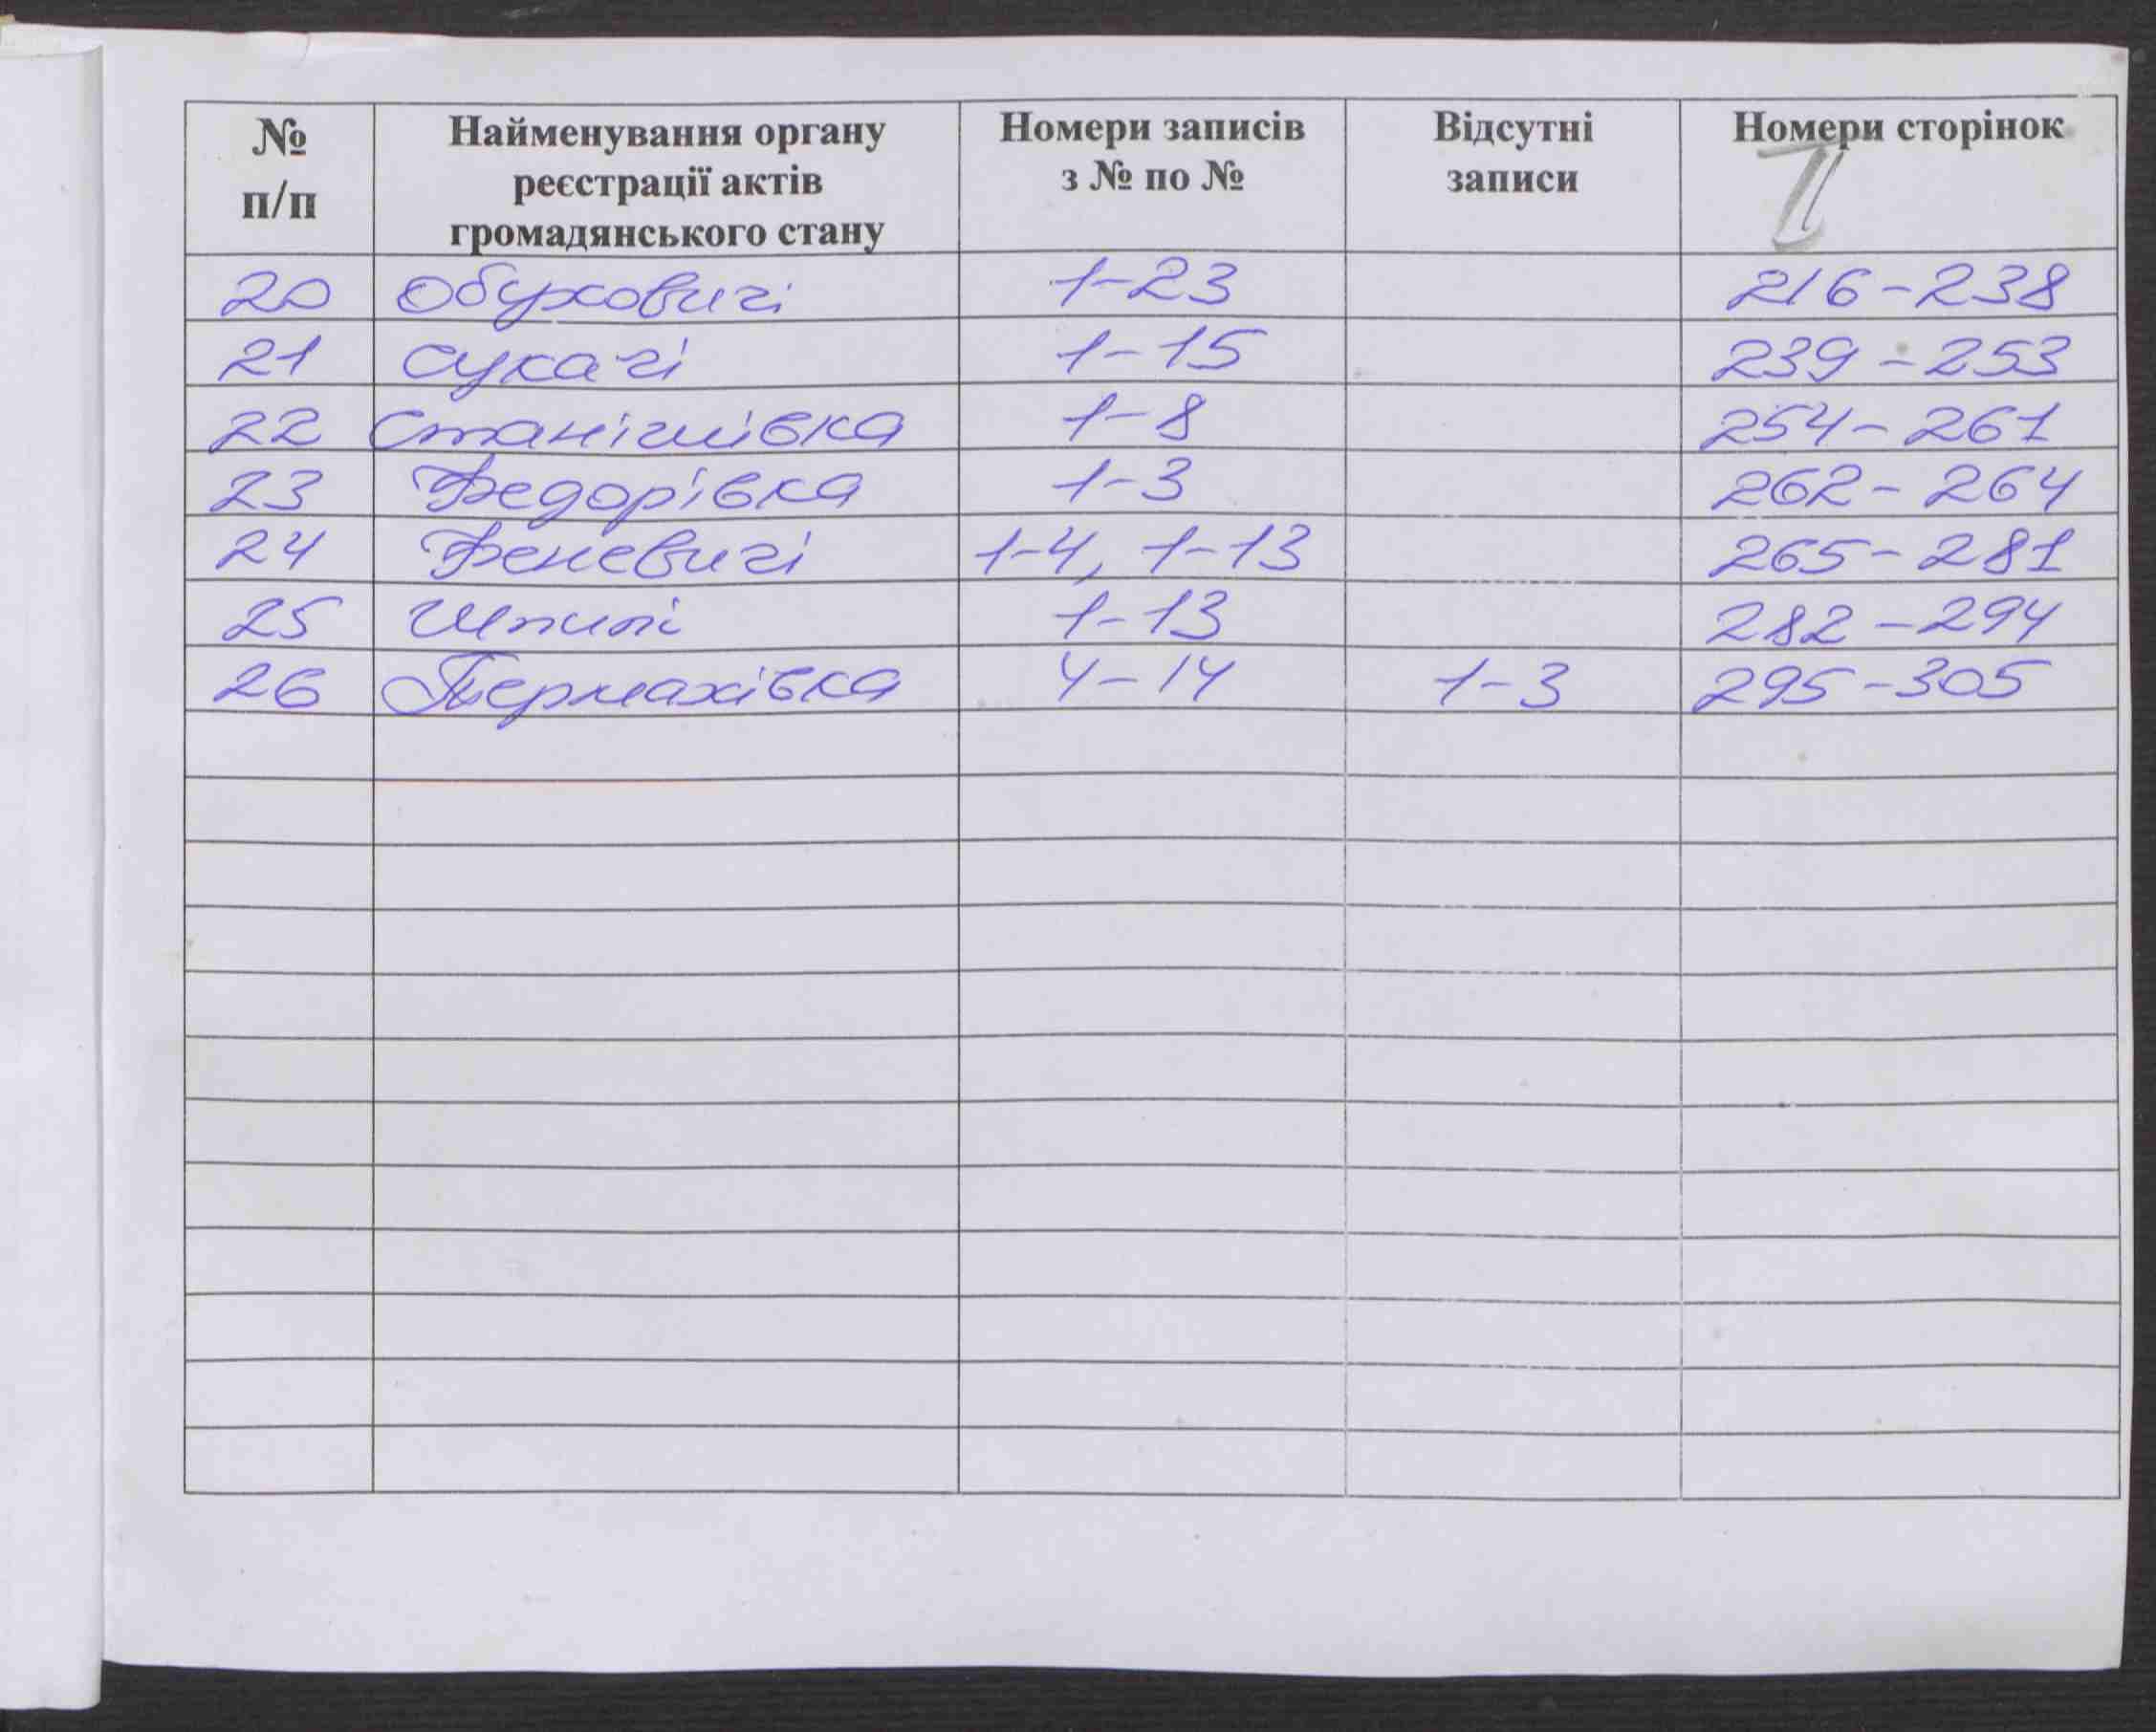 № п/п Найменування органу реєстрації актів громадянського стану Номери записів з № по № Відсутні записи Номери сторінок
II
20 Обуховичі 1-23 216-238
21 Сукачі 1-15 239-253
22 Станішівка 1-8 254-261
23 Федорівка 1-3 262-264
24 Феневичі 1-4, 1-13 265-281
25 Шпилі 1-13 282-294
26 Термахівка 4-14 1-3 295-305